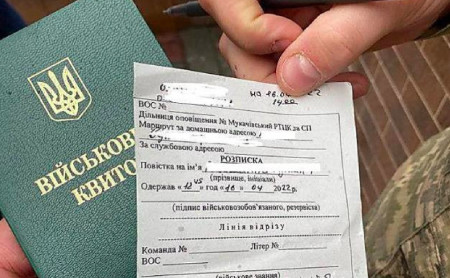 ВІЙСЬКОВ
КВИТО
на 16.04.22
14.00
ВОС №
Дільниця оповіщення № Мукачівський РТЦК та СП
Маршрут за домашньою адресою
За службовою адресою
РОЗПИСКА
Повістка на ім'я,
(прізвище, ініціали)
Одержав «12 45 » год «16 » 04 2022 р.
(підпис військовозобов'язаного, резервіста)
Лінія відрізу
Команда № Літер №
ВОС
(військове звання)